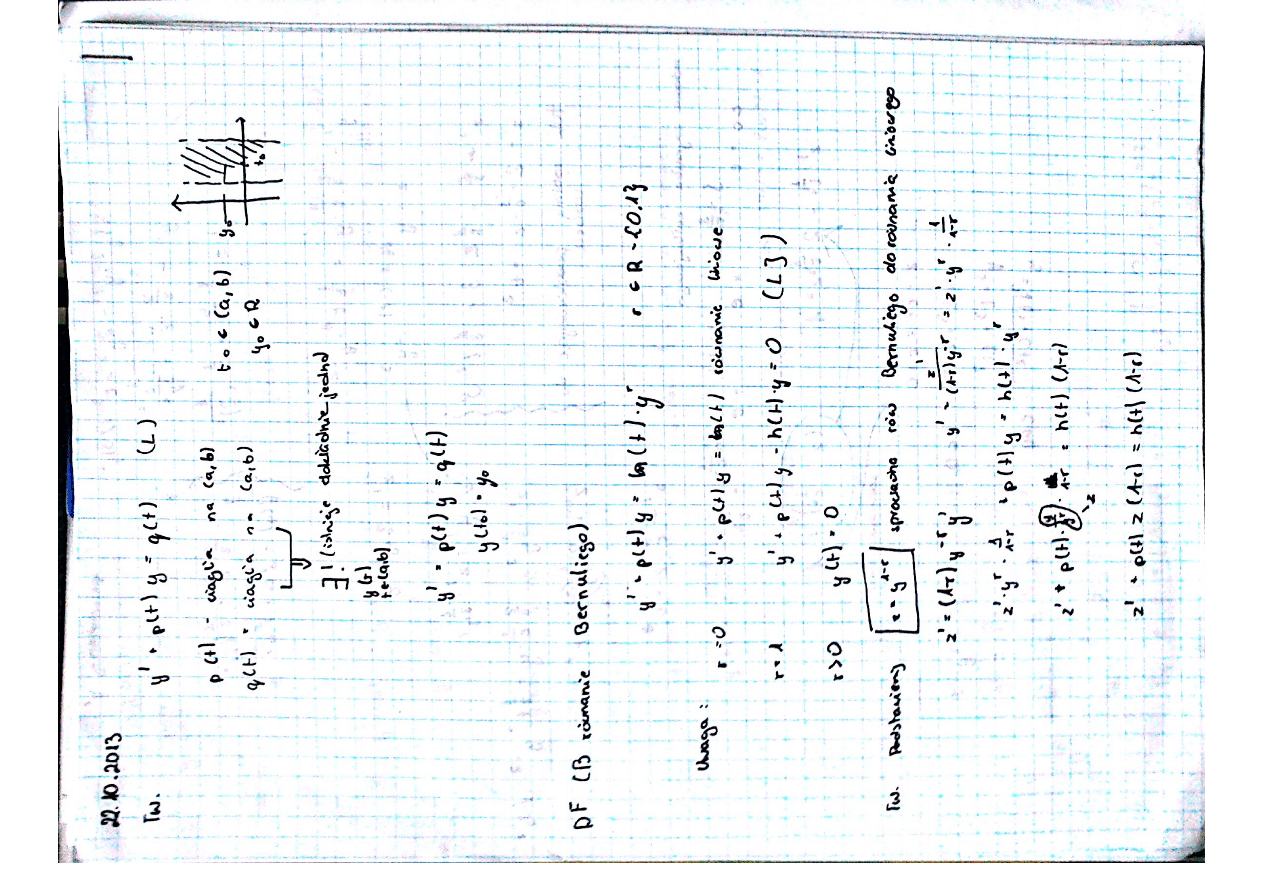 22.10.2013
Tw. y' + p(t) y = q(t) (L)
p(t) - ciągła na (a,b) t₀ ∈ (a,b)
q(t) - ciągła na (a,b) y₀ ∈ R
y₀
t₀
∃! (istnieje dokładnie jedno)
y(t)
t∈(a,b)
y' + p(t) y = q(t)
y(t₀) = y₀
DF (B równanie Bernuliego)
y' + p(t) y = h(t) · yʳ r ∈ R - {0,1}
Uwaga: r = 0 y' + p(t) y = h(t) równanie liniowe
r = 1 y' + p(t) y - h(t) · y = 0 (LJ)
r > 0 y(t) = 0
Tw. Podstawiamy z = y¹⁻ʳ sprowadza rów Bernuliego do równania liniowego
z' = (1-r) y⁻ʳ y' y' = z'/((1-r) y⁻ʳ) = z' · yʳ · 1/(1-r)
z' · yʳ · 1/(1-r) + p(t) y = h(t) · yʳ
z' + p(t) · y/yʳ · 1-r = h(t) (1-r)
z
z' + p(t) z (1-r) = h(t) (1-r)